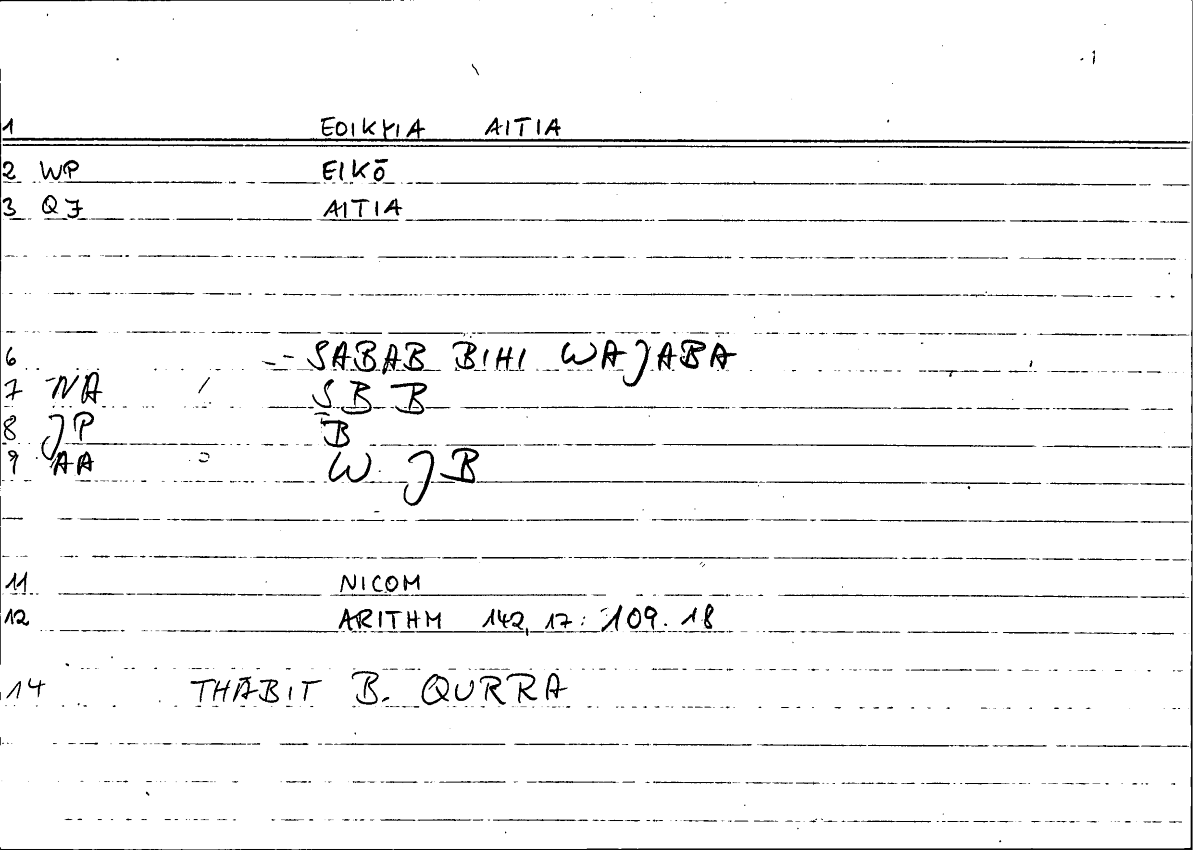 1
1 ΕΟΙΚΥΙΑ ΑΙΤΙΑ
2 WP ΕΙΚŌ
3 QJ ΑΙΤΙΑ
6 -- SABAB BIHI WAJABA
7 NA / SBB
8 JP B
9 AA WJB
11 NICOM
12 ARITHM 142,17: 109.18
14 THĀBIT B. QURRA